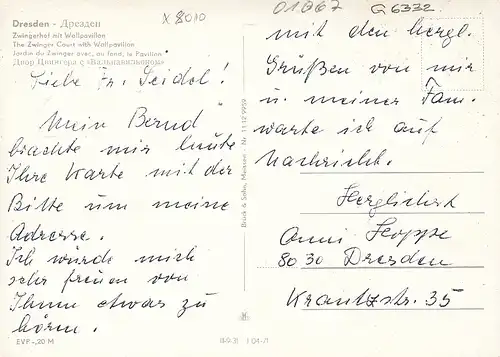 Dresden - Дрезден
Zwingerhof mit Wallpavillon
The Zwinger Court with Wallpavilion
Jardin du Zwinger avec, au fond, le Pavillon
Двор Цвингера с «Вальпавильоном»
X 8010
01067
G 6332
Liebe Fr. Seidel!
Mein Bernd
brachte mir heute
Ihre Karte mit der
Bitte um meine
Adresse.
Ich würde mich
sehr freuen von
Ihnen etwas zu
hören.
mit den hergl.
Grüßen von mir
u. meiner Fam.
warte ich auf
Nachricht.
Herglichst
Anni Hoppe
8030 Dresden
Krantzstr. 35
Brück & Sohn, Meissen Nr. 11 12 9959
EVP -,20 M
III-9-31